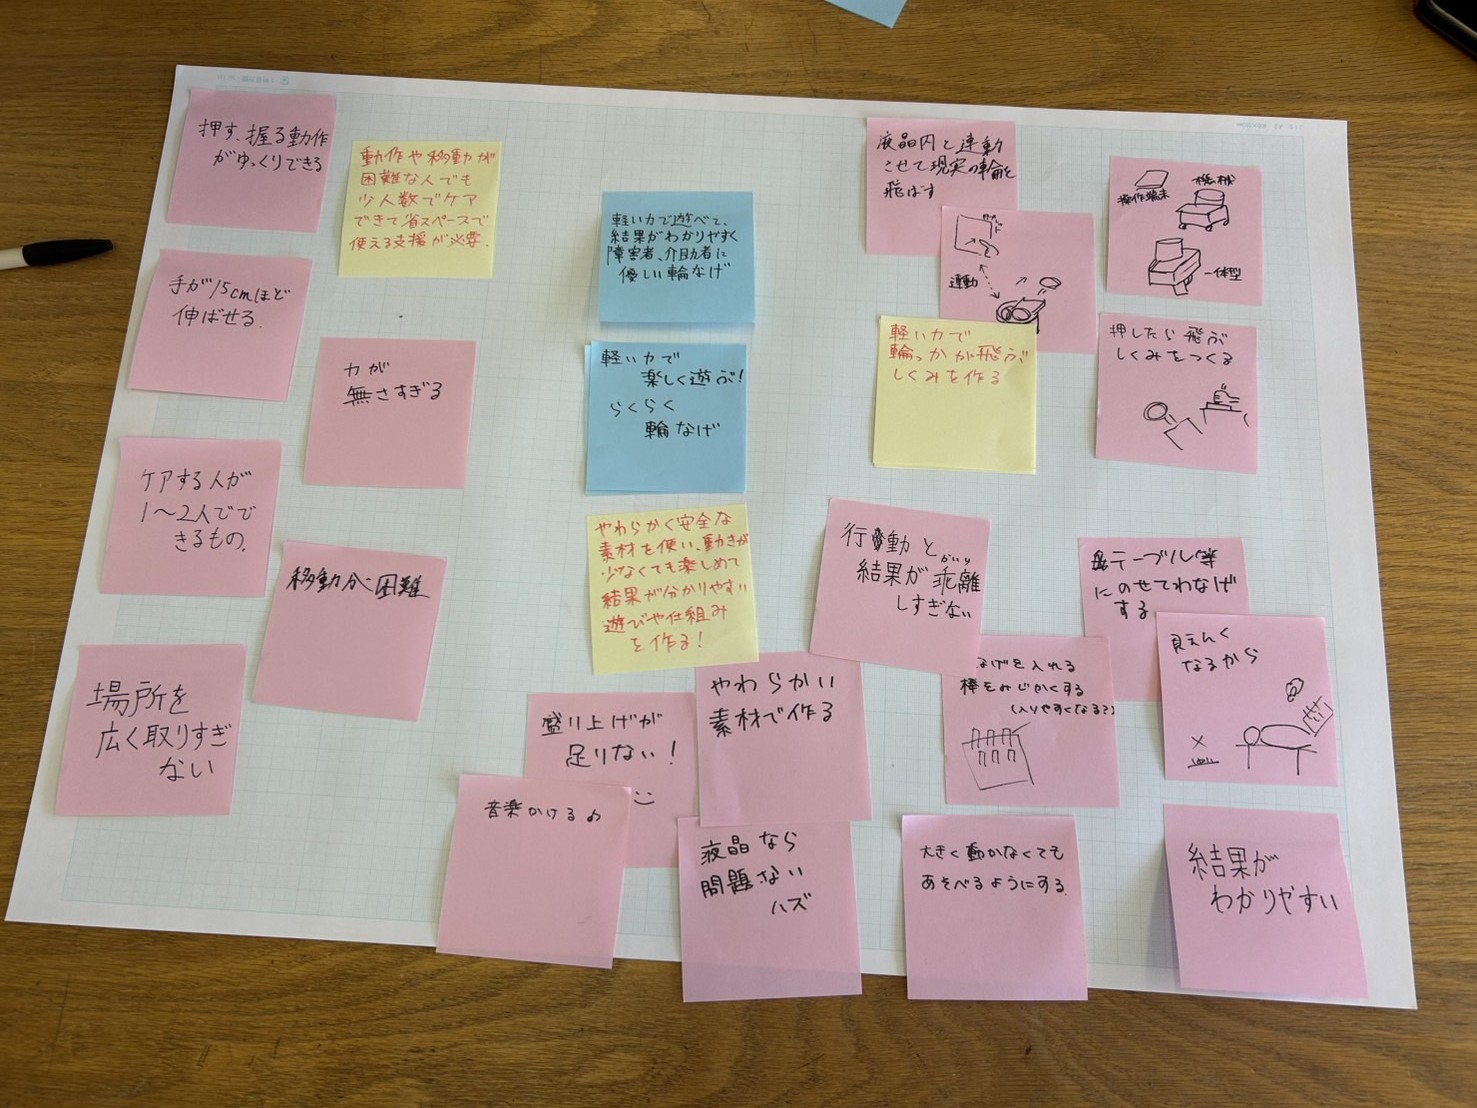 押す、握る動作
がゆっくりできる
動作や移動が
困難な人でも
少人数でケア
できて省スペースで
使える支援が必要。
手が15cmほど
伸ばせる
力が
無さすぎる
ケアする人が
1〜2人でで
きるもの。
移動が困難
場所を
広く取りすぎ
ない
軽い力で遊べて、
結果がわかりやすく
障害者、介助者に
優しい輪なげ
軽い力で
楽しく遊ぶ!
らくらく
輪なげ
やわらかく安全な
素材を使い、動きが
少なくても楽しめて
結果が分かりやすい
遊びや仕組み
を作る!
盛り上げが
足りない!
音楽かける♪
やわらかい
素材で作る
液晶なら
問題ない
ハズ
液晶内と連動
させて現実の輪を
飛ばす
連動
操作端末
機械
一体型
軽い力で
輪っかが飛ぶ
しくみを作る
押したら飛ぶ
しくみをつくる
行動と
かいり
結果が乖離
しすぎない
テーブル等
にのせてわなげ
する
なげを入れる
棒をみじかくする
(入りやすくなる?)
見えんく
なるから
大きく動かなくても
あそべるようにする
結果が
わかりやすい